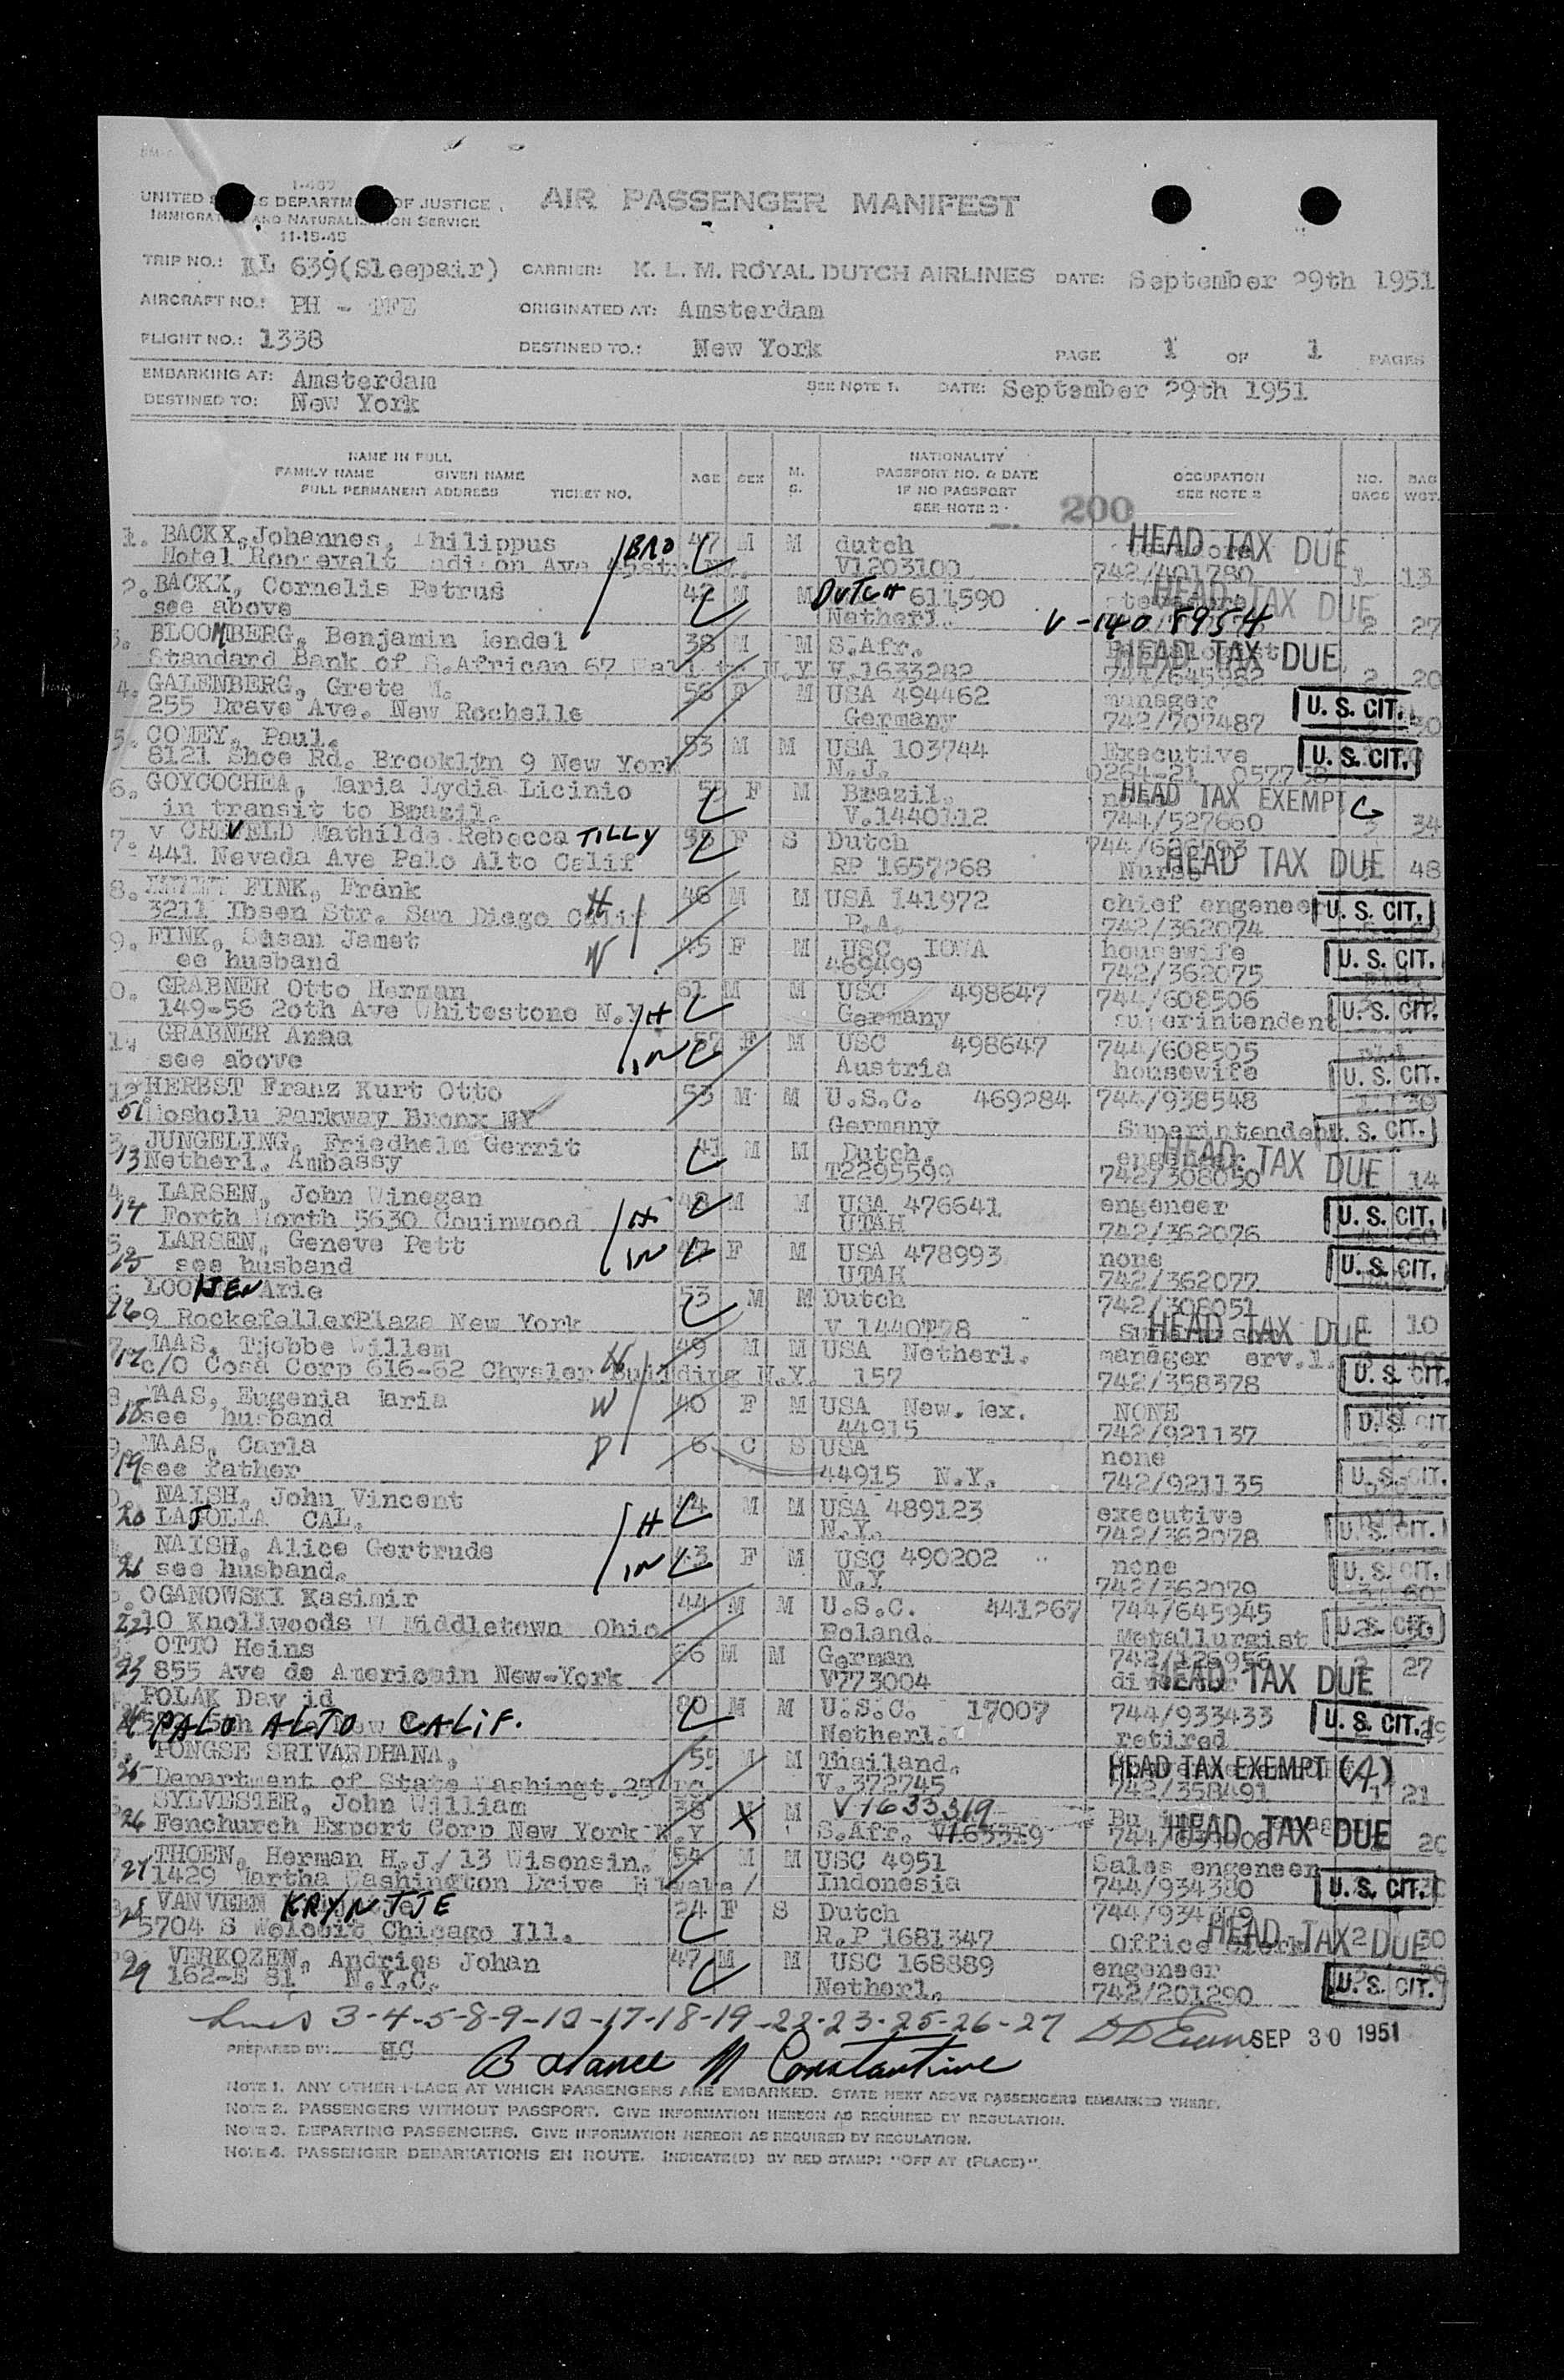 I-467
UNITED STATES DEPARTMENT OF JUSTICE
IMMIGRATION AND NATURALIZATION SERVICE
11-15-45
AIR PASSENGER MANIFEST
TRIP NO.: KL 639(Sleepair) CARRIER: K. L. M. ROYAL DUTCH AIRLINES DATE: September 29th 1951
AIRCRAFT NO.: PH - TFE ORIGINATED AT: Amsterdam
FLIGHT NO.: 1338 DESTINED TO.: New York PAGE 1 OF 1 PAGES
EMBARKING AT: Amsterdam SEE NOTE 1. DATE: September 29th 1951
DESTINED TO: New York
NAME IN FULL
FAMILY NAME GIVEN NAME
FULL PERMANENT ADDRESS TICKET NO.
AGE SEX M. S.
NATIONALITY
PASSPORT NO. & DATE
IF NO PASSPORT
SEE NOTE 2
OCCUPATION
SEE NOTE 2
NO. BAGS
BAG WGT.
200
1. BACKX, Johannes, Philippus BRO 47 M M dutch HEAD TAX DUE
Hotel Roosevelt V1203100 742/401780 1 13
2. BACKX, Cornelis Petrus 42 M M DUTCH 611590 HEAD TAX DUE
see above Netherl. V-140 8954 2 27
3. BLOOMBERG, Benjamin Mendel 38 M M S.Afr. HEAD TAX DUE
Standard Bank of S.African 67 Wall N.Y V.1633282 744/645982 2 20
4. GALENBERG, Grete M. 56 F M USA 494462 manager U. S. CIT.
255 Drave Ave. New Rochelle Germany 742/707487
5. COMEY, Paul. 53 M M USA 103744 Executive U. S. CIT.
8121 Shoe Rd. Brooklyn 9 New York N.J.
6. GOYCOCHEA, Maria Lydia Licinio F M Brazil. HEAD TAX EXEMPT
in transit to Brazil. V.1440112 744/527660 3 34
7. v CREVELD Mathilde Rebecca TILLY F S Dutch
441 Nevada Ave Palo Alto Calif RP 1657268 Nurse HEAD TAX DUE 48
8. FINK, Frank H 46 M M USA 141972 chief engeneer U. S. CIT.
3211 Ibsen Str. San Diego Calif P.A. 742/362074
9. FINK, Susan Jamet W 45 F M USC IOWA housewife U. S. CIT.
ee husband 469499 742/362075
0. GRABNER Otto Herman 61 M M USC 498647 744/608506
149-56 20th Ave Whitestone N.Y H Germany superintendent U. S. CIT.
1. GRABNER Anna 57 F M USC 498647 744/608505
see above Austria housewife U. S. CIT.
12 HERBST Franz Kurt Otto 53 M M U.S.C. 469284 744/938548
Mosholu Parkway Bronx NY Germany Superintendent U. S. CIT.
3. JUNGELING, Friedhelm Gerrit 41 M M Dutch. HEAD TAX DUE
13 Netherl. Ambassy T2295599 742/308050 14
4. LARSEN, John Winegan M M USA 476641 engeneer U. S. CIT.
14 Forth Worth 5630 Couinwood H UTAH 742/362076
5. LARSEN, Geneve Pett W F M USA 478993 none U. S. CIT.
15 see husband UTAH 742/362077
LOOIJEN Arie 53 M M Dutch 742/308051
16 9 RockefellerPlaza New York HEAD TAX DUE 10
7. MAAS, Tjebbe Willem 49 M M USA Netherl. manager
17 c/O Cosa Corp 616-62 Chysler Building N.Y. 157 742/358378 U. S. CIT.
MAAS, Eugenia Maria W 40 F M USA New. Mex. NONE
18 see husband 44915 742/921137 U. S. CIT.
MAAS, Carla D 6 C S USA none
19 see father 44915 N.Y. 742/921135 U. S. CIT.
NAISH, John Vincent 44 M M USA 489123 executive
20 LAJOLLA CAL. H N.Y. 742/362078 U. S. CIT.
NAISH, Alice Gertrude 43 F M USC 490202 none
21 see husband. W N.Y 742/362079 U. S. CIT.
OGANOWSKI Kasimir 44 M M U.S.C. 441267 744/645945
22 10 Knollwoods Middletown Ohio Poland. Metallurgist U. S. CIT.
OTTO Heins M M German 27
23 855 Ave de Americain New-York V773004 HEAD TAX DUE
POLAK Dav id 80 M M U.S.C. 17007 744/933433
PALO ALTO CALIF. Netherl. retired U. S. CIT.
PONGSE SRIVARDHANA, 55 M Thailand. HEAD TAX EXEMPT (A)
25 Department of State Washingt.25 DC V.372745 742/358491 1 21
SYLVESTER, John William 38 X M V1633319
26 Fenchurch Export Corp New York N.Y S.Afr. HEAD TAX DUE 20
THOEN, Herman H.J./ 13 Wisonsin. 54 M M USC 4951 Sales engeneer
27 1429 Martha Washington Drive Indonesia 744/934380 U. S. CIT.
VAN VEEN KRYNTJE 24 F S Dutch
28 5704 S Chicago Ill. R.P 1681347 Office HEAD TAX DUE
VERKOZEN, Andries Johan 47 M M USC 168889 engeneer
29 162-E 81 N.Y.C. Netherl. 742/201290 U. S. CIT.
Lines 3-4-5-8-9-10-17-18-19-22-23-25-26-27 SEP 30 1951
PREPARED BY: HC Balance N Constantine
NOTE 1. ANY OTHER PLACE AT WHICH PASSENGERS ARE EMBARKED. STATE NEXT ABOVE PASSENGERS EMBARKED THERE.
NOTE 2. PASSENGERS WITHOUT PASSPORT. GIVE INFORMATION HEREON AS REQUIRED BY REGULATION.
NOTE 3. DEPARTING PASSENGERS. GIVE INFORMATION HEREON AS REQUIRED BY REGULATION.
NOTE 4. PASSENGER DEBARKATIONS EN ROUTE. INDICATE(D) BY RED STAMP: "OFF AT (PLACE)".